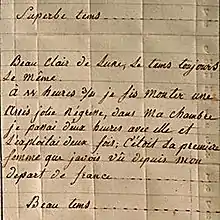 Superbe tems
Beau Clair de Lune, Le tems toujours
Le même.
à heures je fis monter une
très jolie Négresse, dans ma chambre
je passai deux heures avec elle et
L'exploitai deux fois; C'étoit la première
femme que j'avois vû depuis mon
depart de france
Beau tems